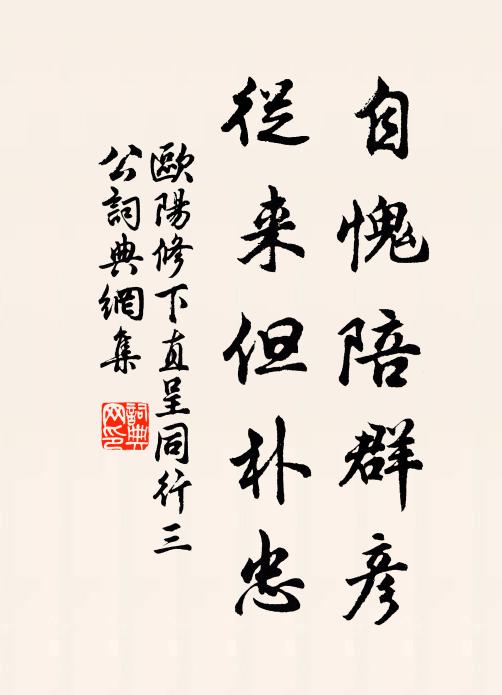 自愧陪群彦
從来但朴忠
歐陽修下直呈同行三
公詞典網集
詞典
网印